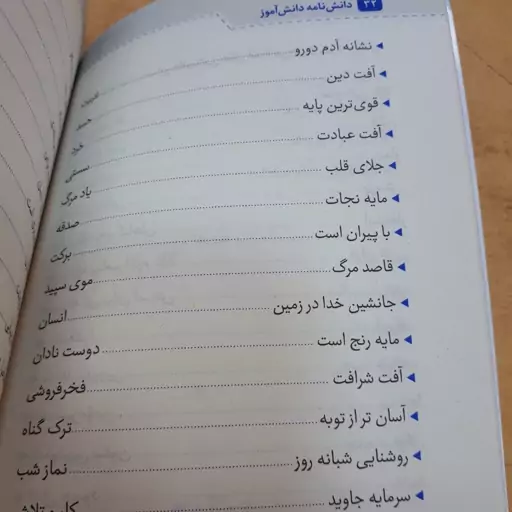 ۲۲ دانش‌نامه دانش‌آموز
نشانه آدم دورو
آفت دین حسد
قوی‌ترین پایه خرد
آفت عبادت سستی
جلای قلب یاد مرگ
مایه نجات صدقه
با پیران است برکت
قاصد مرگ موی سپید
جانشین خدا در زمین انسان
مایه رنج است دوست نادان
آفت شرافت فخرفروشی
آسان تر از توبه ترک گناه
روشنایی شبانه روز نماز شب
سرمایه جاوید کار و تلاش